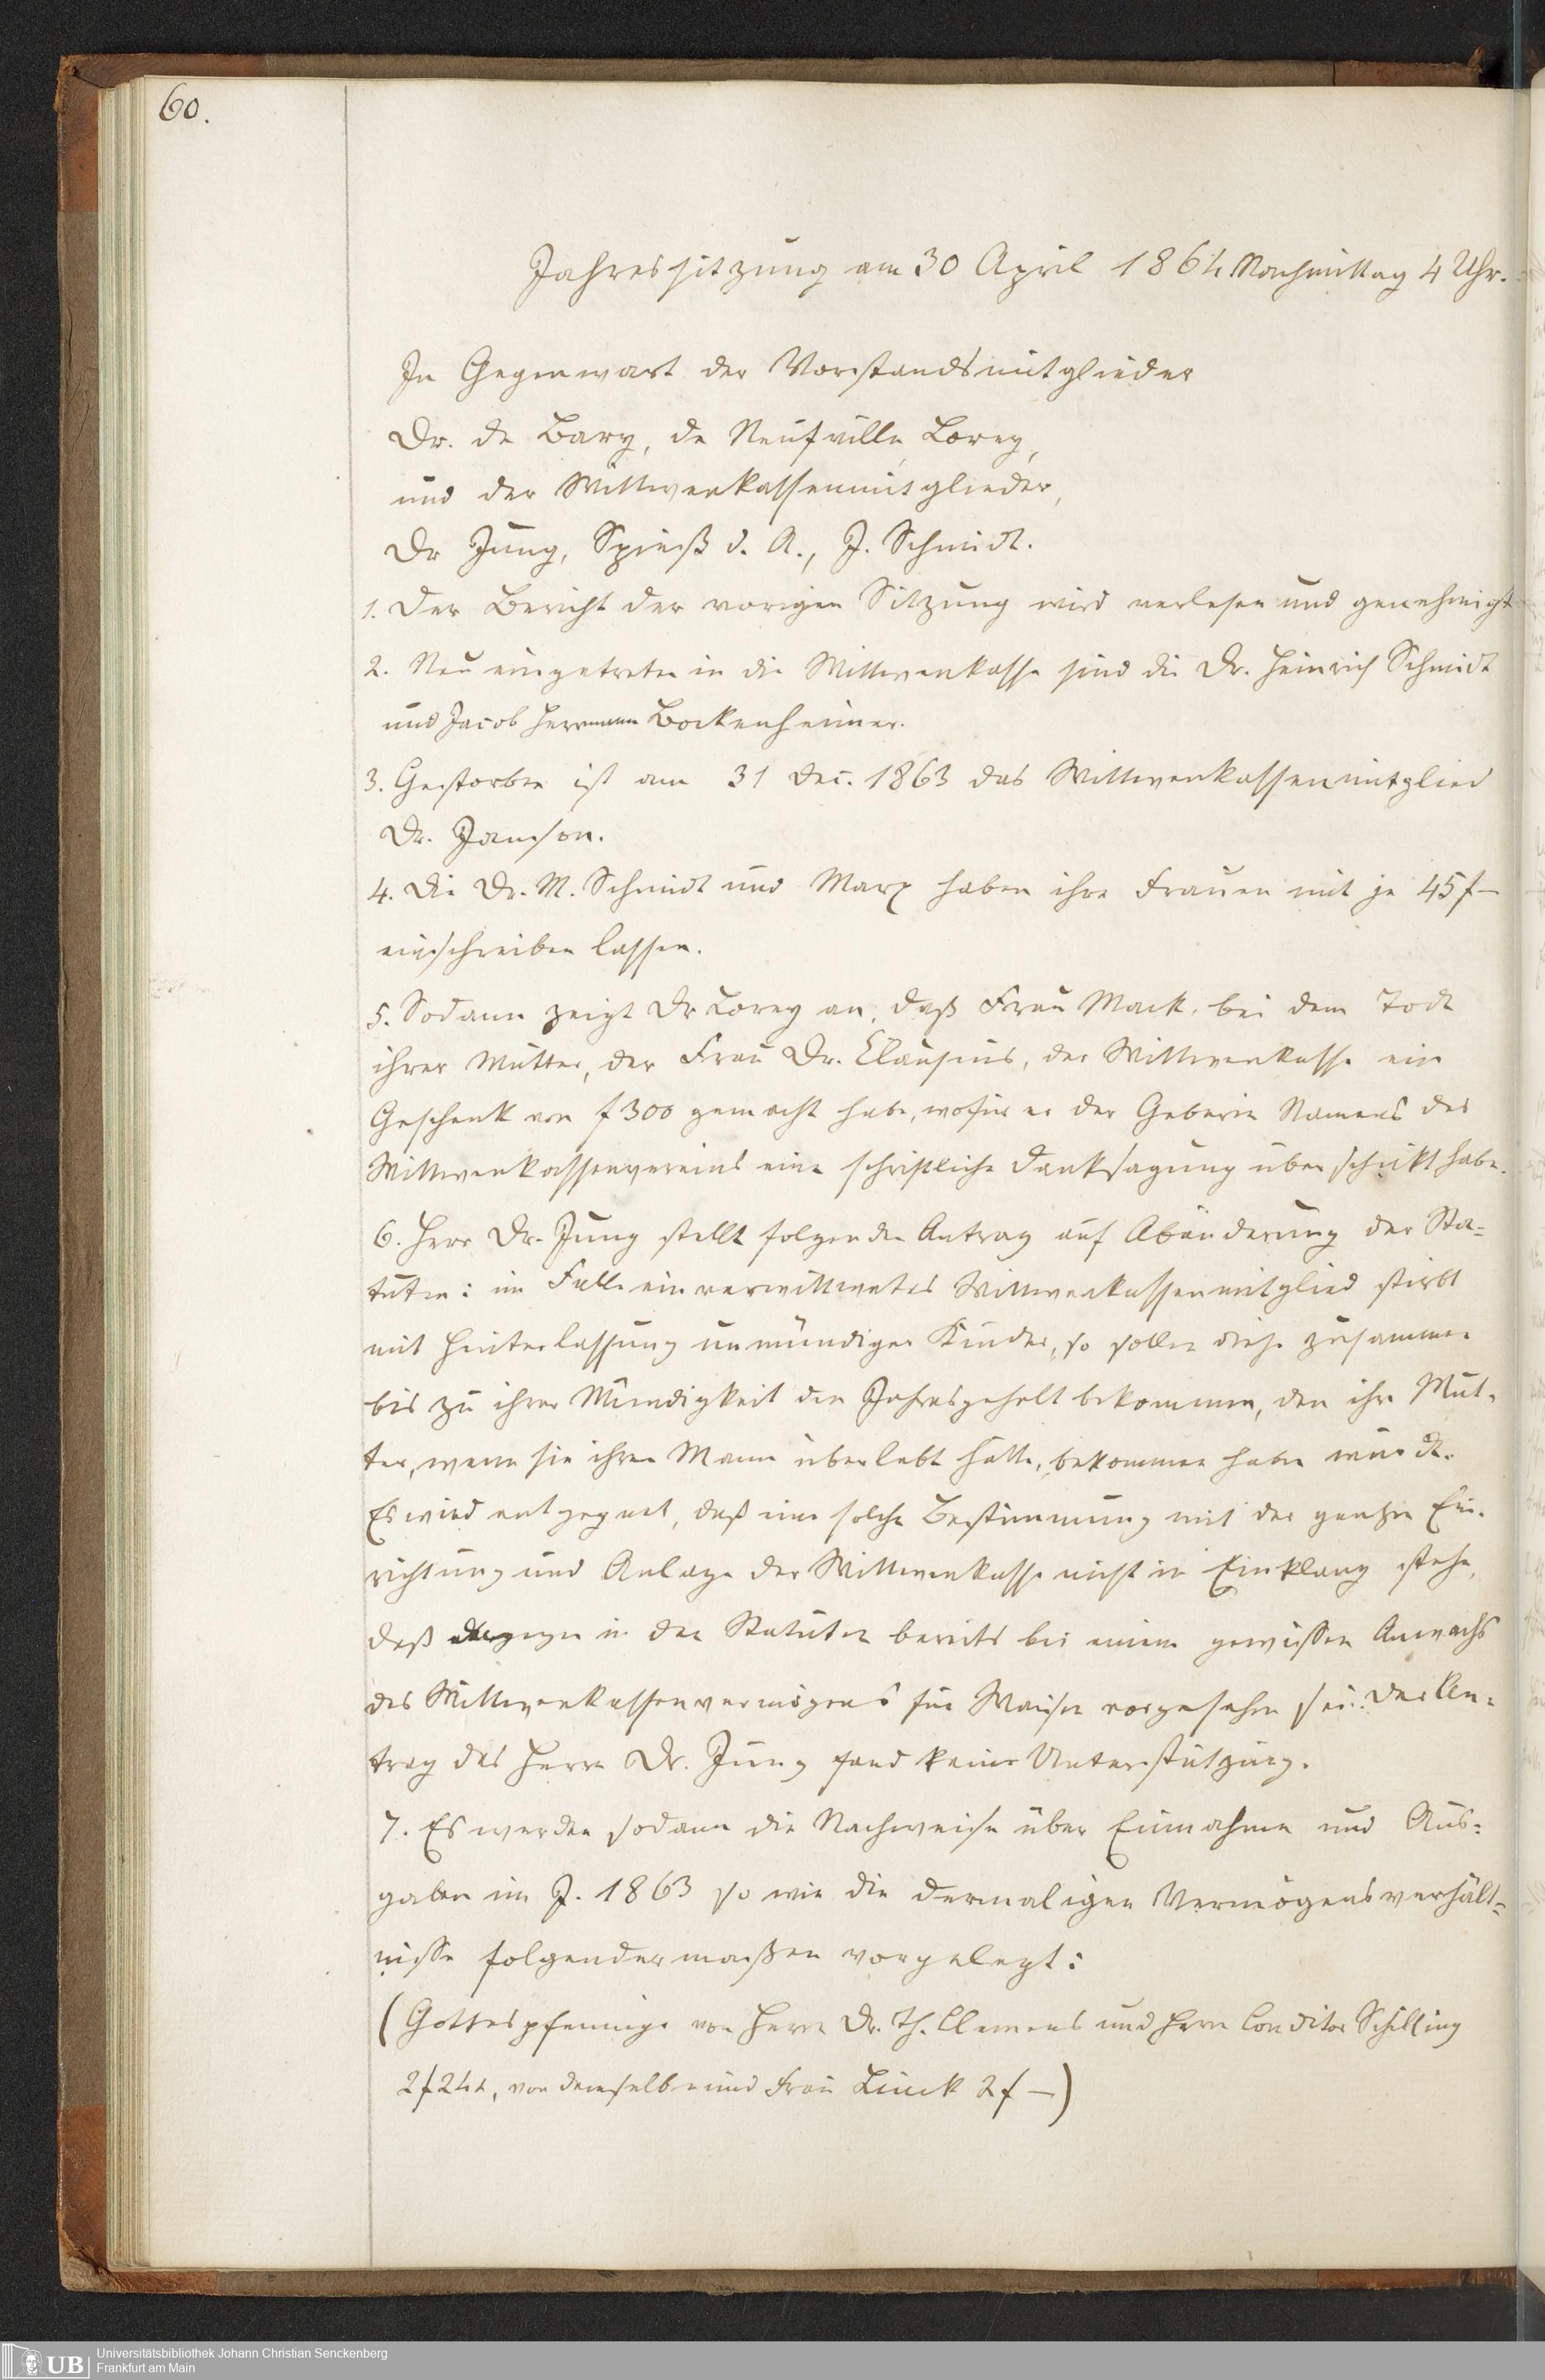 60.
Jahressitzung am 30 April 1864 Nachmittag 4 Uhr.
In Gegenwart der Vorstandsmitglieder
Dr. de Bary, de Neufville, Lorey,
und der Wittwenkassenmitglieder,
Dr Jung, Spieß d. A., J. Schmidt.
1. Der Bericht der vorigen Sitzung wird verlesen und genehmigt
2. Neu eingetreten in die Wittwenkasse sind die Dr. Heinrich Schmidt
und Jacob Herrmann Bockenheimer.
3. Gestorben ist am 31 Dec. 1863 das Wittwenkassenmitglied
Dr. Janson.
4. Die Dr. M. Schmidt und Marx haben ihre Frauen mit je 45 f —
einschreiben lassen.
5. Sodann zeigt Dr Lorey an, daß Frau Mack, bei dem Tode
ihrer Mutter, der Frau Dr. Clausius, der Wittwenkasse ein
Geschenk von f 300 gemacht habe, wofür er der Geberin Namens des
Wittwenkassenvereins eine schriftliche Danksagung überschickt habe.
6. Herr Dr. Jung stellt folgenden Antrag auf Abänderung der Sta-
tuten: im Falle ein verwittwetes Wittwenkassenmitglied stirbt
mit Hinterlassung unmündiger Kinder, so sollen diese zusammen
bis zu ihrer Mündigkeit den Jahresgehalt bekommen, den ihre Mut-
ter, wenn sie ihren Mann überlebt hätte, bekommen haben würde.
Es wird entgegnet, daß eine solche Bestimmung mit der ganzen Ein-
richtung und Anlage der Wittwenkasse nicht in Einklang stehe,
daß dagegen in den Statuten bereits bei einem gewissen Anwachs
des Wittwenkassenvermögens für Waisen vorgesehen sei. Der An-
trag des Herrn Dr. Jung fand keine Unterstützung.
7. Es werden sodann die Nachweise über Einnahmen und Aus-
gaben im J. 1863 so wie die dermaligen Vermögensverhält-
nisse folgendermaßen vorgelegt:
(Gottespfennige von Herrn Dr. Th. Clemens und Herrn Conditor Schilling
2 f 24 x, von demselben und Frau Linck 2 f —)
UB Universitätsbibliothek Johann Christian Senckenberg
Frankfurt am Main